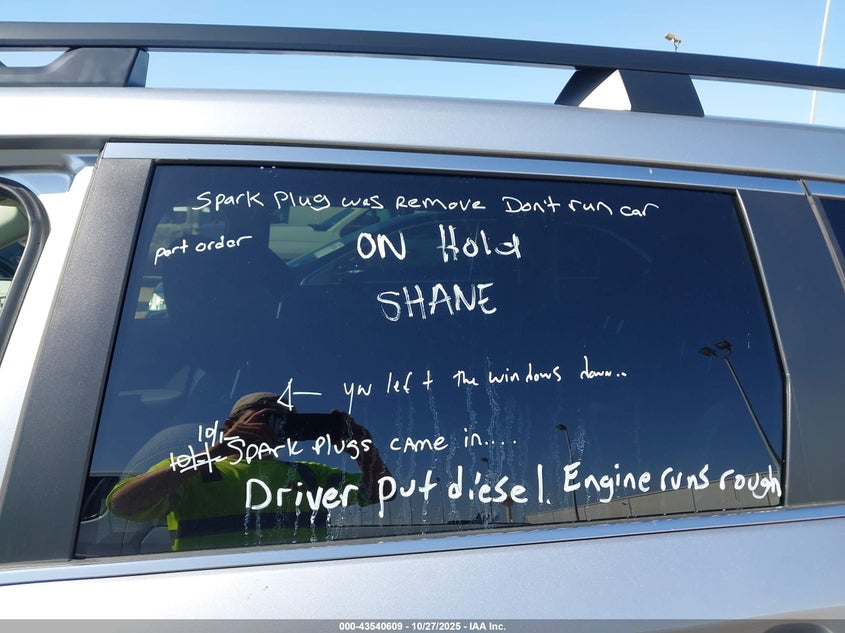 Spark Plug was Remove Don't run car
part order
ON Hold
SHANE
you left the windows down..
10/1 Spark Plugs came in....
Driver put diesel. Engine runs rough
000-43540609 - 10/27/2025 - IAA Inc.